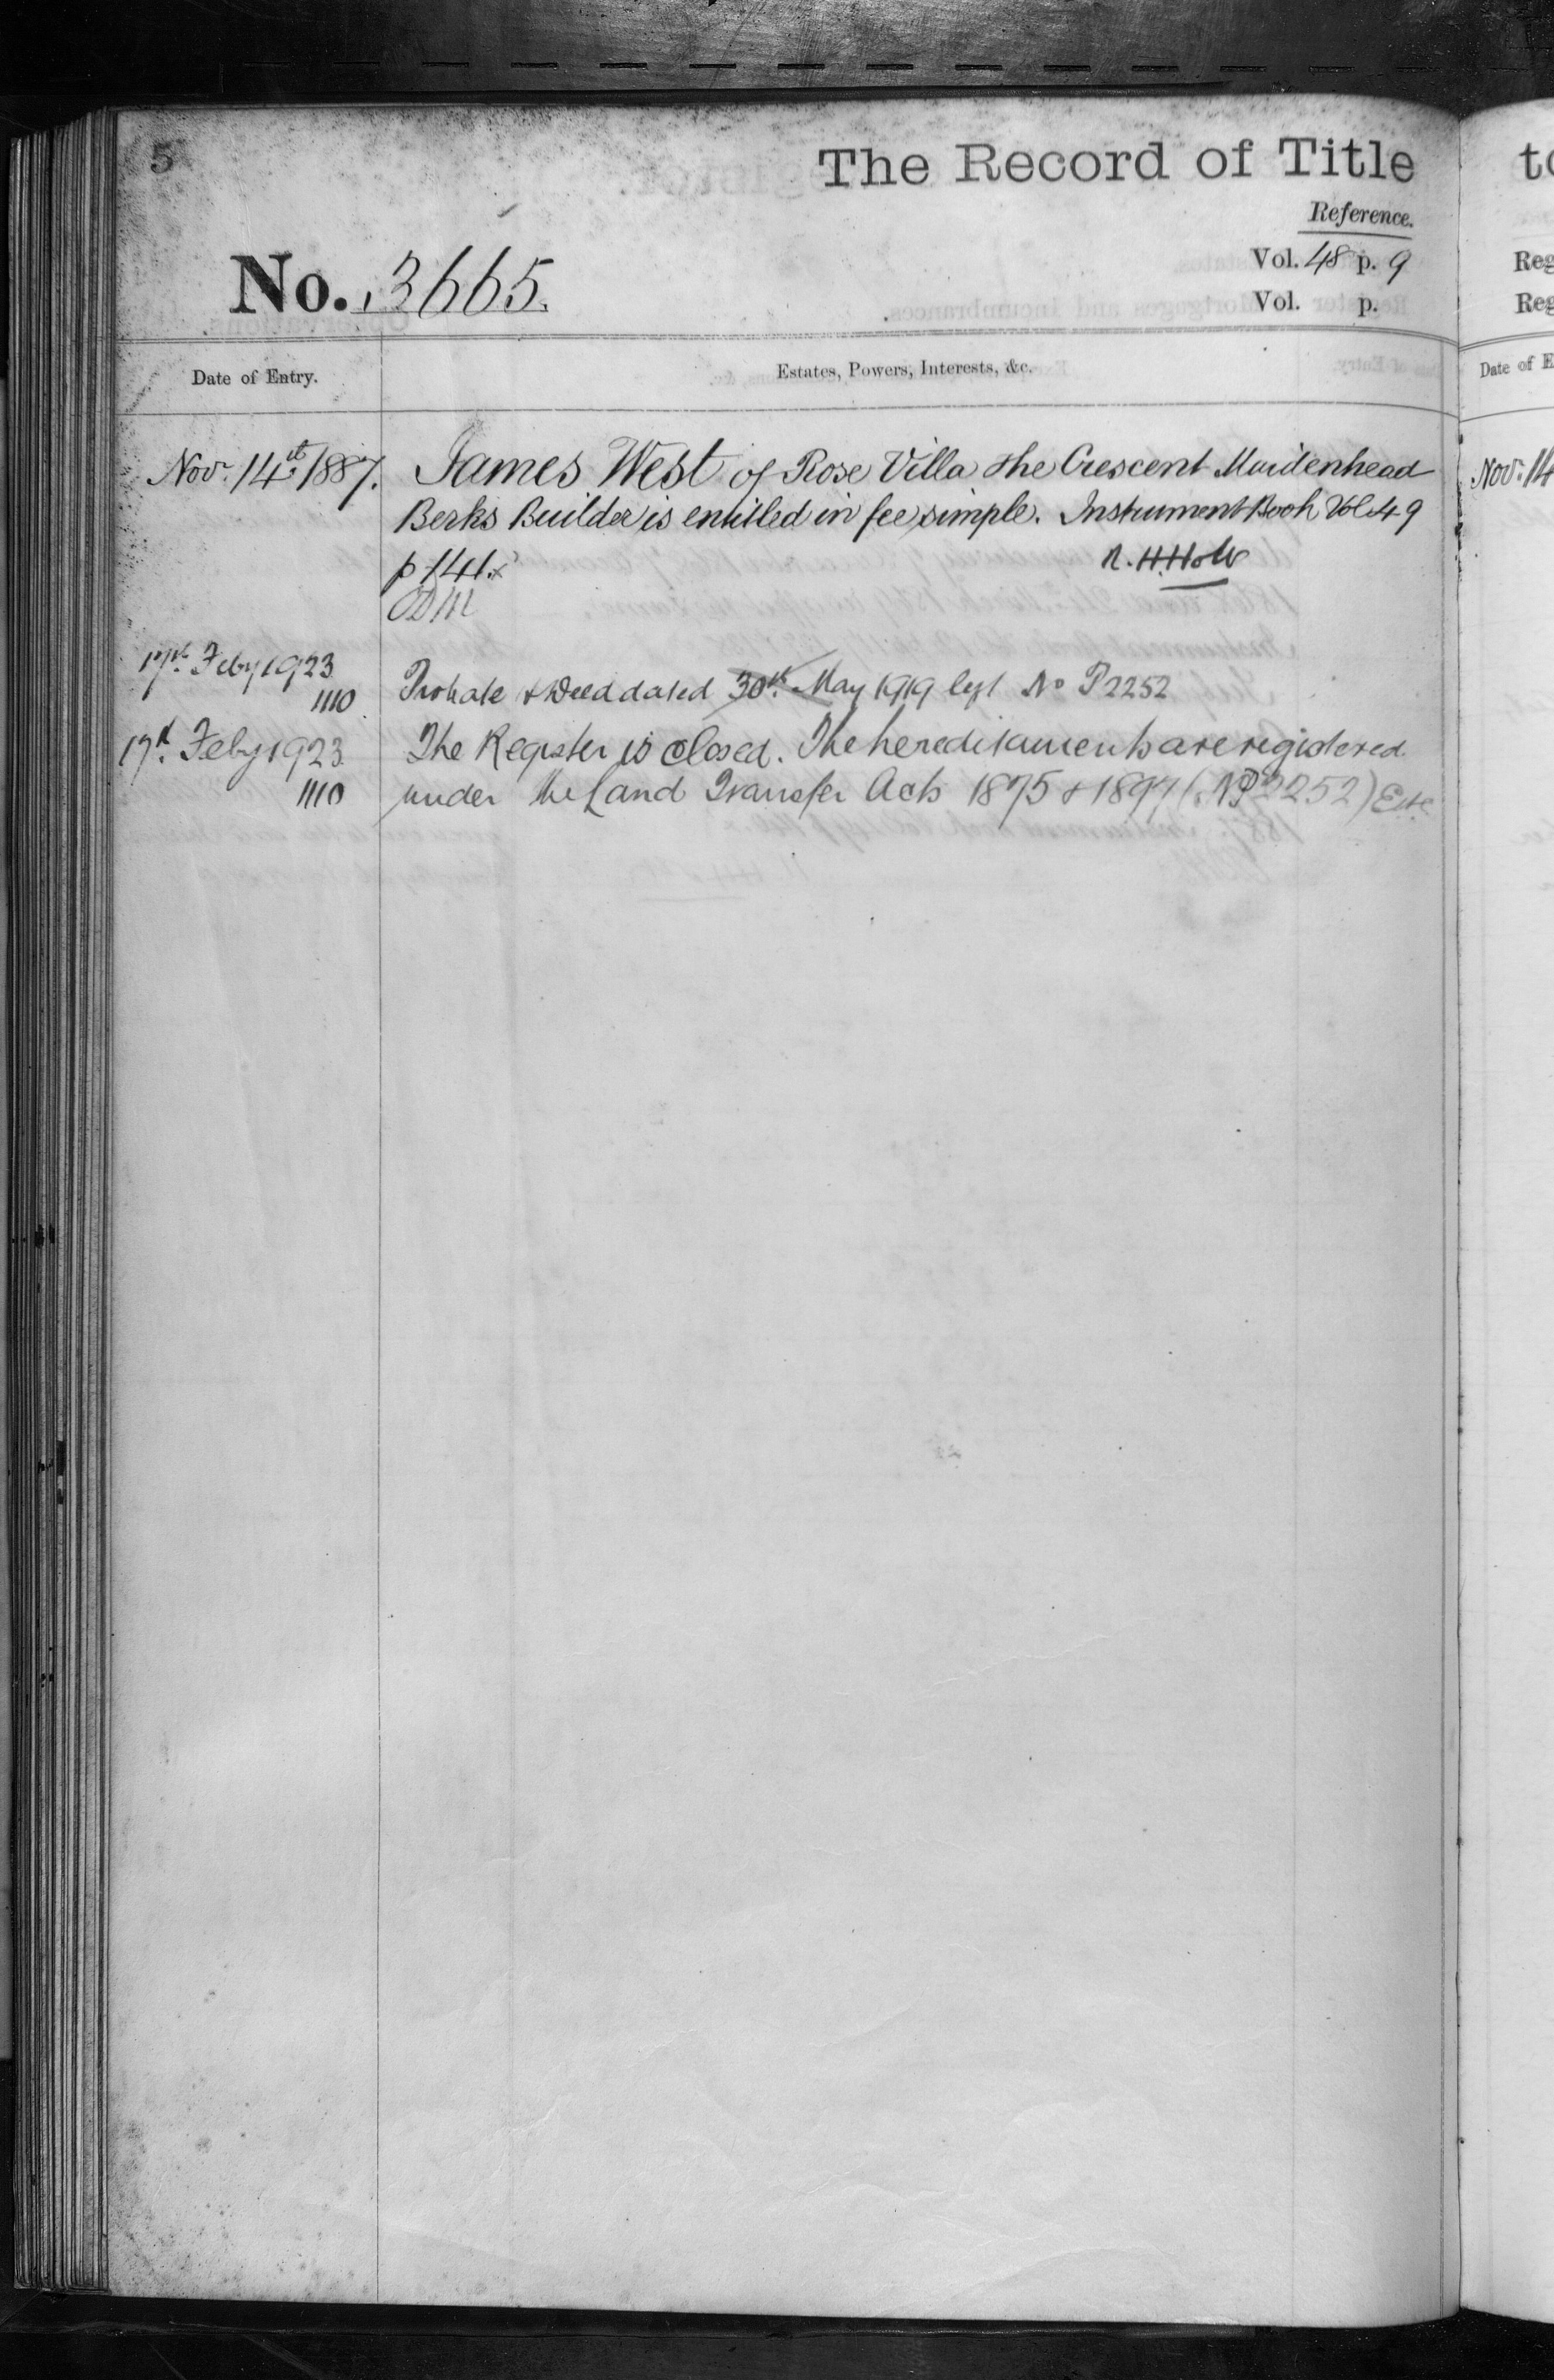 5
The Record of Title
Reference.
No. 3665.
Vol. 48 p. 9
Vol. p.
Date of Entry.
Estates, Powers, Interests, &c.
Nov. 14th 1887. James West of Rose Villa The Crescent Maidenhead
Berks Builder is entitled in fee simple. Instrument Book Vol. 49
p 141.
R. H. Holt
17th Feby 1923
1110 Probate & Deed dated 30th May 1919 left No P2252
17th Feby 1923 The Register is closed. The hereditaments are registered
1110 under the Land Transfer Acts 1875 & 1897 (No P2252)
to
Reg
Reg
Date of E
Nov. 14